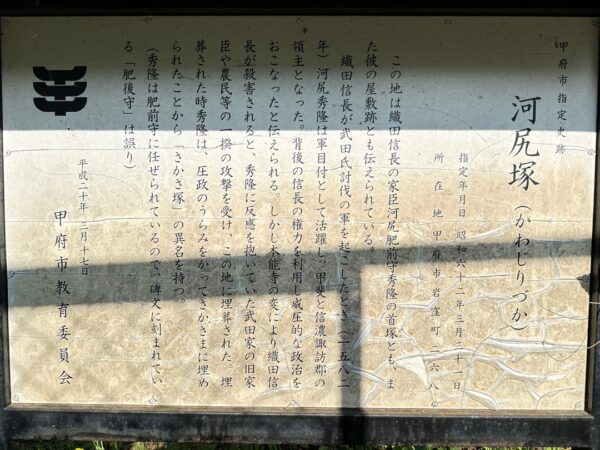 甲府市指定史跡
河尻塚（かわじりづか）
指定年月日 昭和六十二年三月三十一日
所在地 甲府市岩窪町二六八
この地は織田信長の家臣河尻肥前守秀隆の首塚とも、ま
た彼の屋敷跡とも伝えられている。
織田信長が武田氏討伐の軍を起こしたとき（一五八二
年）河尻秀隆は軍目付として活躍し、甲斐と信濃諏訪郡の
領主となった。背後の信長の権力を利用し威圧的な政治を
おこなったと伝えられる。しかし本能寺の変により織田信
長が殺害されると、秀隆に反感を抱いていた武田家の旧家
臣や農民等の一揆の攻撃を受け、この地に埋葬された。埋
葬された時秀隆は、圧政のうらみをかってさかさまに埋め
られたことから「さかさ塚」の異名を持つ。
（秀隆は肥前守に任ぜられているので、碑文に刻まれてい
る「肥後守」は誤り）
平成二十年三月十七日
甲府市教育委員会